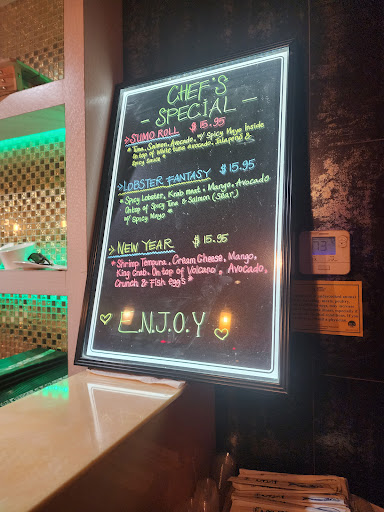 CHEF'S
- SPECIAL -
SUMO ROLL $15.95
* Tuna, Salmon, Avocado, w/ Spicy Mayo Inside
On top of White tuna Avocado, Jalapeno &
Spicy Sauce *
LOBSTER FANTASY $15.95
* Spicy Lobster, Krab meat, Mango, Avocado
On top of Spicy Tuna & Salmon (Sear)
w/ Spicy Mayo *
NEW YEAR $15.95
* Shrimp Tempura, Cream Cheese, Mango,
King Crab. On top of Volcano, Avocado,
Crunch & Fish egg's *
E.N.J.O.Y